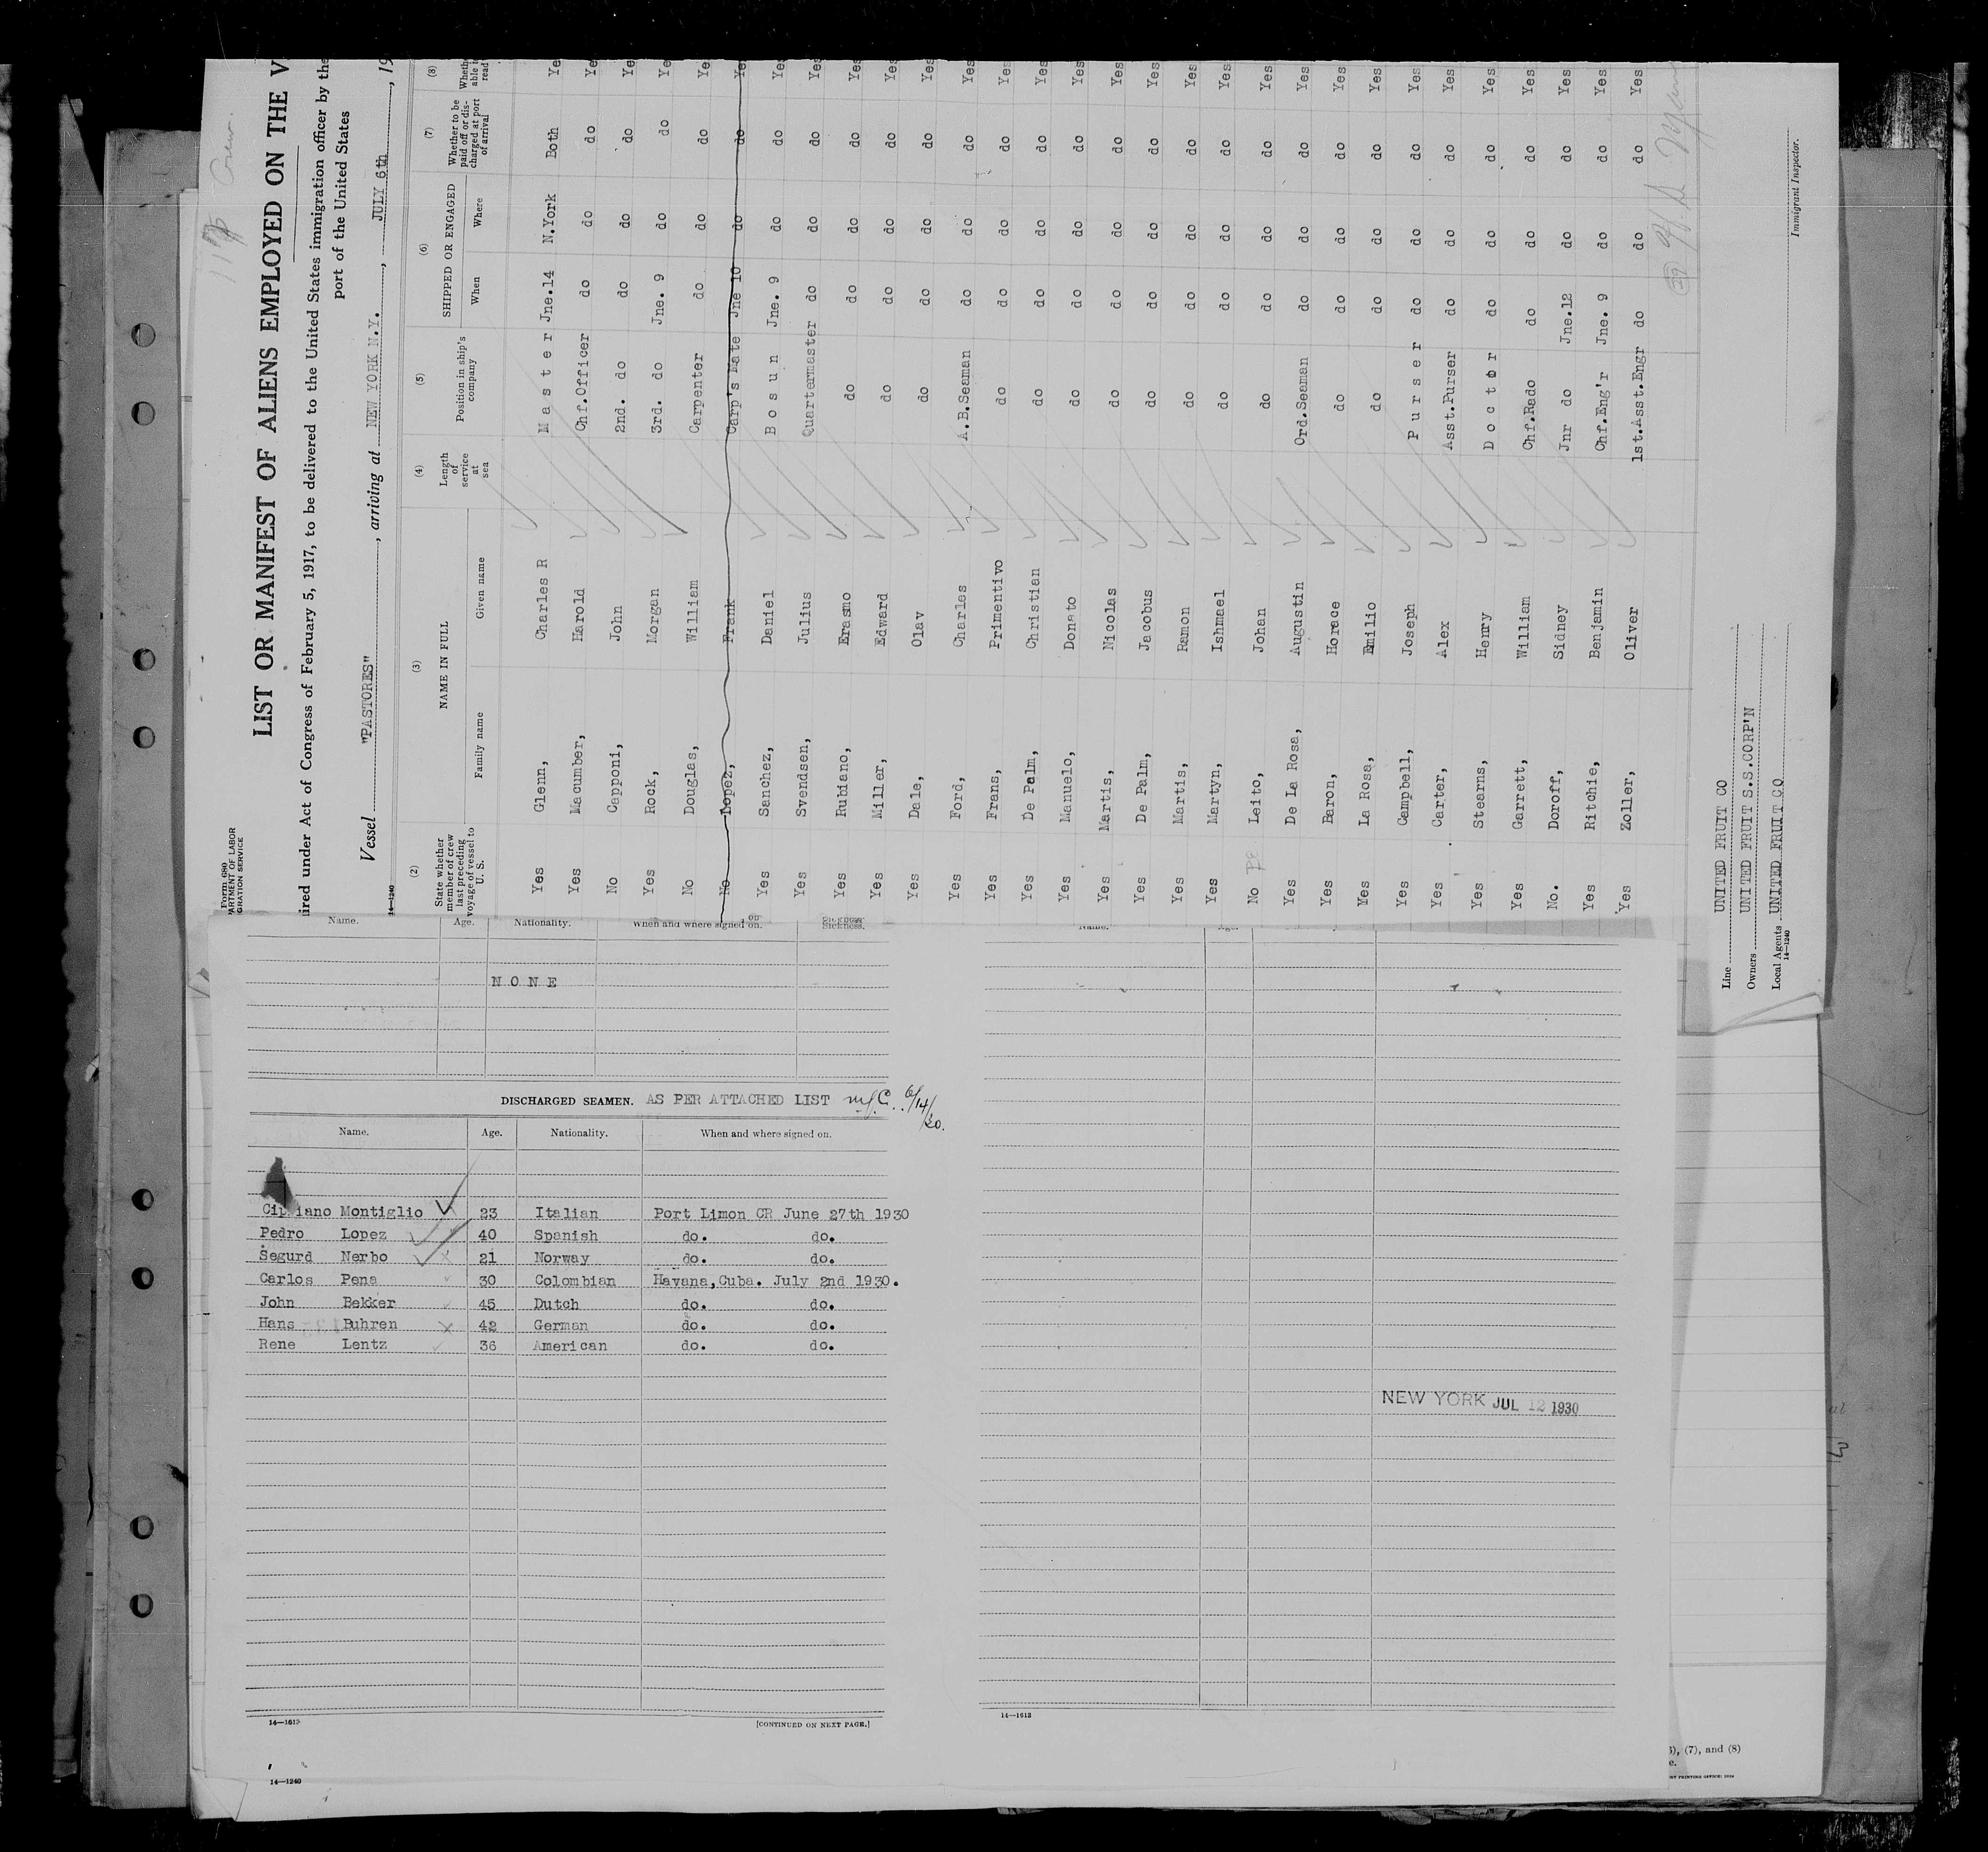 Form 680
LIST OR MANIFEST OF ALIENS EMPLOYED ON THE V
ired under Act of Congress of February 5, 1917, to be delivered to the United States immigration officer by the
port of the United States
Vessel "PASTORES", arriving at NEW YORK N.Y., JULY 6th, 19
14—1240
(2) (3) (4) (5) (6) (7) (8)
State whether member of crew last preceding voyage of vessel to U. S. NAME IN FULL Family name Given name Length of service at sea Position in ship's company SHIPPED OR ENGAGED When Where Whether to be paid off or discharged at port of arrival
Yes Glenn, Charles R Master Jne.14 N.York Both Ye
Yes Macumber, Harold Chf.Officer do do do Ye
No Capponi, John 2nd. do do do do Ye
Yes Rock, Morgan 3rd. do Jne. 9 do do Ye
No Douglas, William Carpenter do do do Yes
No Lopez, Frank Carp's Mate Jne 10 do do Yes
Yes Sanchez, Daniel Bosun Jne. 9 do do Yes
Yes Svendsen, Julius Quartermaster do do do Yes
Yes Rubiano, Erasmo do do do do Yes
Yes Miller, Edward do do do do Yes
Yes Dale, Olav do do do do Yes
Yes Ford, Charles A.B.Seaman do do do Yes
Yes Frans, Primentivo do do do do Yes
Yes De Palm, Christian do do do do Yes
Yes Manuelo, Donato do do do do Yes
Yes Martis, Nicolas do do do do Yes
Yes De Palm, Jacobus do do do do Yes
Yes Martis, Ramon do do do do Yes
Yes Martyn, Ishmael do do do do Yes
No Leito, Johan do do do do Yes
Yes De La Rosa, Augustin Ord.Seaman do do do Yes
Yes Baron, Horace do do do do Yes
Yes La Rosa, Emilio do do do do Yes
Yes Campbell, Joseph Purser do do do Yes
Yes Carter, Alex Asst.Purser do do do Yes
Yes Stearns, Henry Doctor do do do Yes
Yes Garrett, William Chf.Rado do do do Yes
No. Doroff, Sidney Jnr do Jne.12 do do Yes
Yes Ritchie, Benjamin Chf.Eng'r Jne. 9 do do Yes
Yes Zoller, Oliver 1st.Asst.Engr do do do Yes
Line UNITED FRUIT CO
Owners UNITED FRUIT S.S.CORP'N
Local Agents UNITED FRUIT CO
14—1240
Immigrant Inspector.
Name. Age. Nationality. When and where signed on. Sickness.
NONE
DISCHARGED SEAMEN. AS PER ATTACHED LIST
Name. Age. Nationality. When and where signed on.
Cipriano Montiglio 23 Italian Port Limon CR June 27th 1930
Pedro Lopez 40 Spanish do. do.
Segurd Nerbo 21 Norway do. do.
Carlos Pena 30 Colombian Havana,Cuba. July 2nd 1930.
John Bekker 45 Dutch do. do.
Hans Buhren 42 German do. do.
Rene Lentz 36 American do. do.
14—1613
[CONTINUED ON NEXT PAGE.]
14—1240
NEW YORK JUL 12 1930
14—1613
(7), and (8)